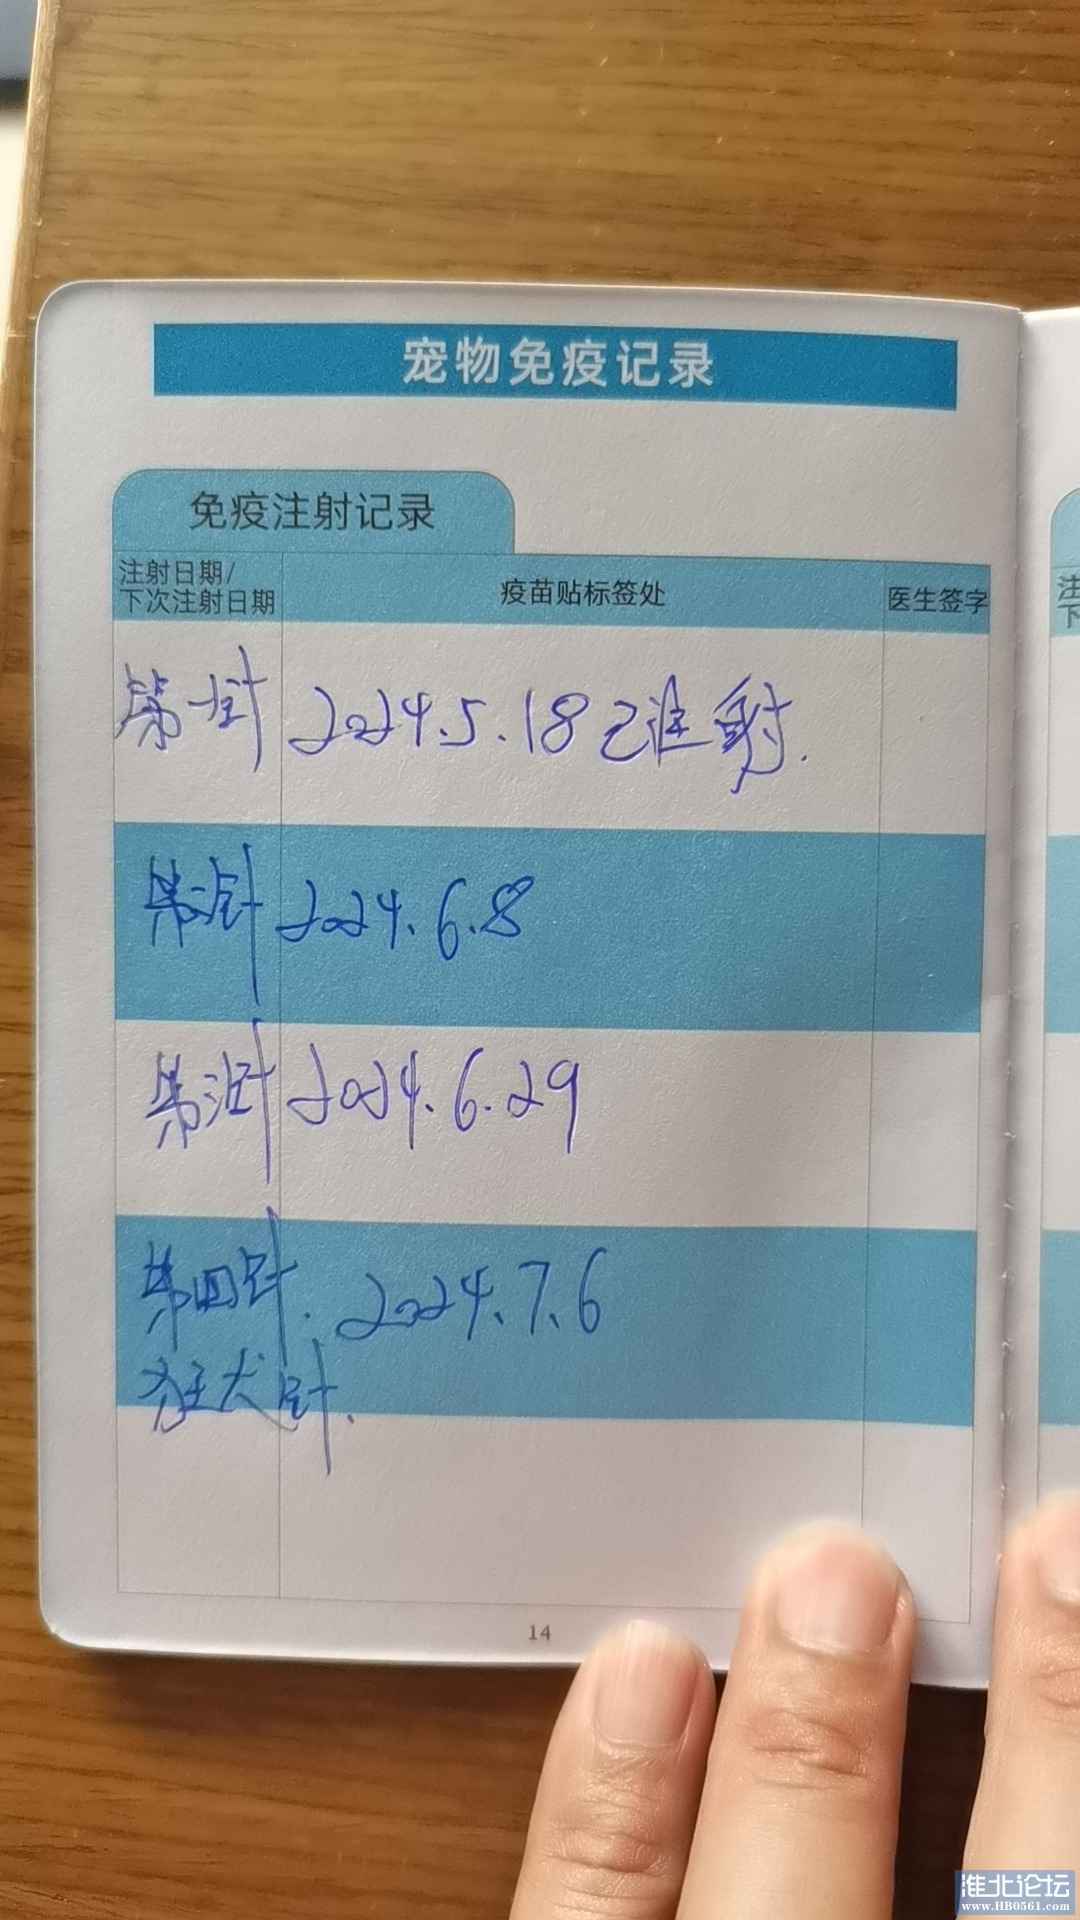 宠物免疫记录
免疫注射记录
注射日期/
下次注射日期
疫苗贴标签处
医生签字
注
下
第一针 2024.5.18已注射.
第二针 2024.6.8
第三针 2024.6.29
第四针. 2024.7.6
狂犬针.
14
淮北论坛
www.HB0561.com